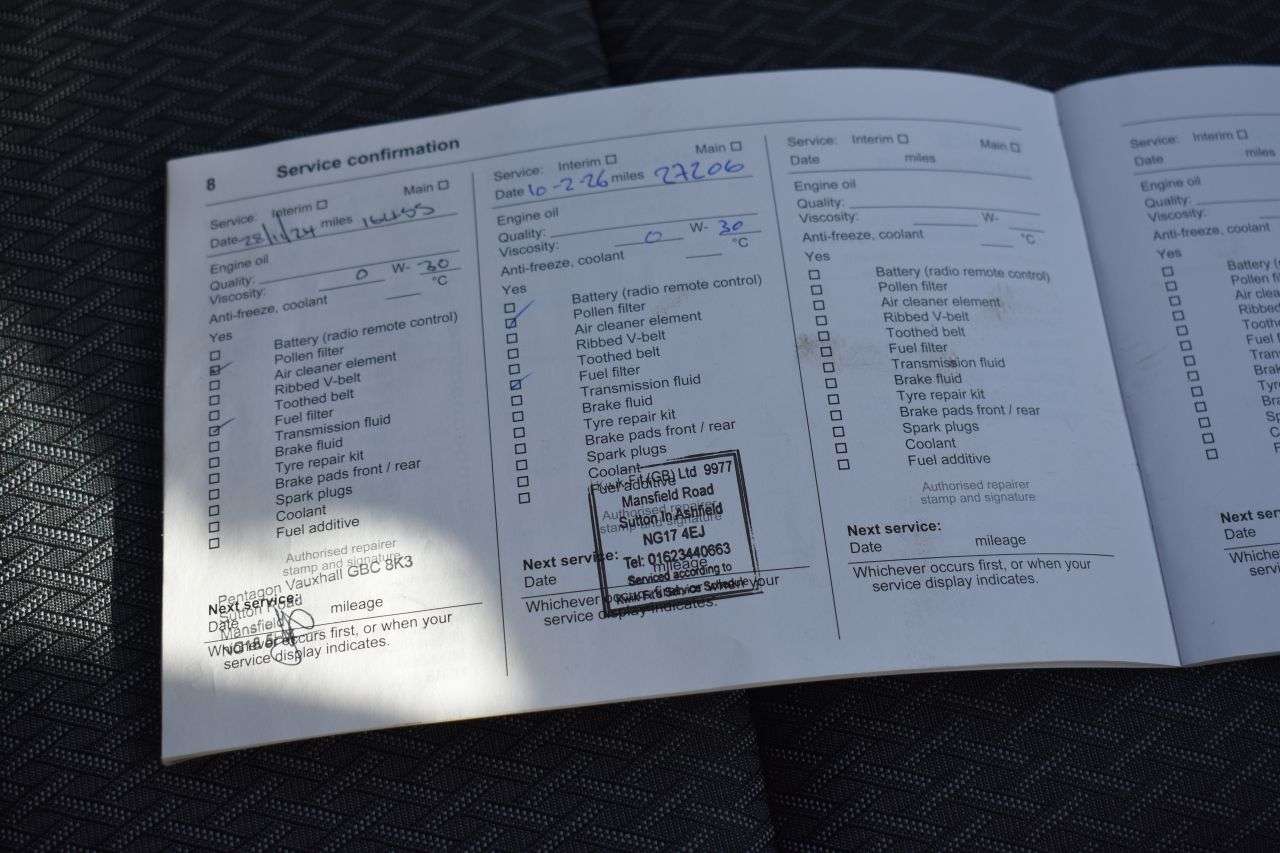 8 Service confirmation
Service: Interim Main
Date 28/11/24 miles 16455
Engine oil
Quality:
Viscosity: 0 W- 30
Anti-freeze, coolant °C
Yes
Battery (radio remote control)
Pollen filter
Air cleaner element
Ribbed V-belt
Toothed belt
Fuel filter
Transmission fluid
Brake fluid
Tyre repair kit
Brake pads front / rear
Spark plugs
Coolant
Fuel additive
Authorised repairer
stamp and signature
Pentagon Vauxhall GBC 8K3
Next service:
Sutton Road
Date mileage
Mansfield
Whichever occurs first, or when your
NG18
service display indicates.
Service: Interim Main
Date 10-2-26 miles 27206
Engine oil
Quality:
Viscosity: 0 W- 30
Anti-freeze, coolant °C
Yes
Battery (radio remote control)
Pollen filter
Air cleaner element
Ribbed V-belt
Toothed belt
Fuel filter
Transmission fluid
Brake fluid
Tyre repair kit
Brake pads front / rear
Spark plugs
Coolant
Fuel additive
Authorised repairer
stamp and signature
Kwik-Fit (GB) Ltd 9977
Mansfield Road
Sutton In Ashfield
NG17 4EJ
Tel: 01623440663
Serviced according to
Kwik Fit's Service Schedule
Next service:
Date mileage
Whichever occurs first, or when your
service display indicates.
Service: Interim Main
Date miles
Engine oil
Quality:
Viscosity: W-
Anti-freeze, coolant °C
Yes
Battery (radio remote control)
Pollen filter
Air cleaner element
Ribbed V-belt
Toothed belt
Fuel filter
Transmission fluid
Brake fluid
Tyre repair kit
Brake pads front / rear
Spark plugs
Coolant
Fuel additive
Authorised repairer
stamp and signature
Next service:
Date mileage
Whichever occurs first, or when your
service display indicates.
Service: Interim
Date miles
Engine oil
Quality:
Viscosity:
Anti-freeze, coolant
Yes
Battery (
Pollen fi
Air clea
Ribbed
Tooth
Fuel
Tran
Brak
Tyr
Br
Sp
C
F
Next ser
Date
Whiche
servi